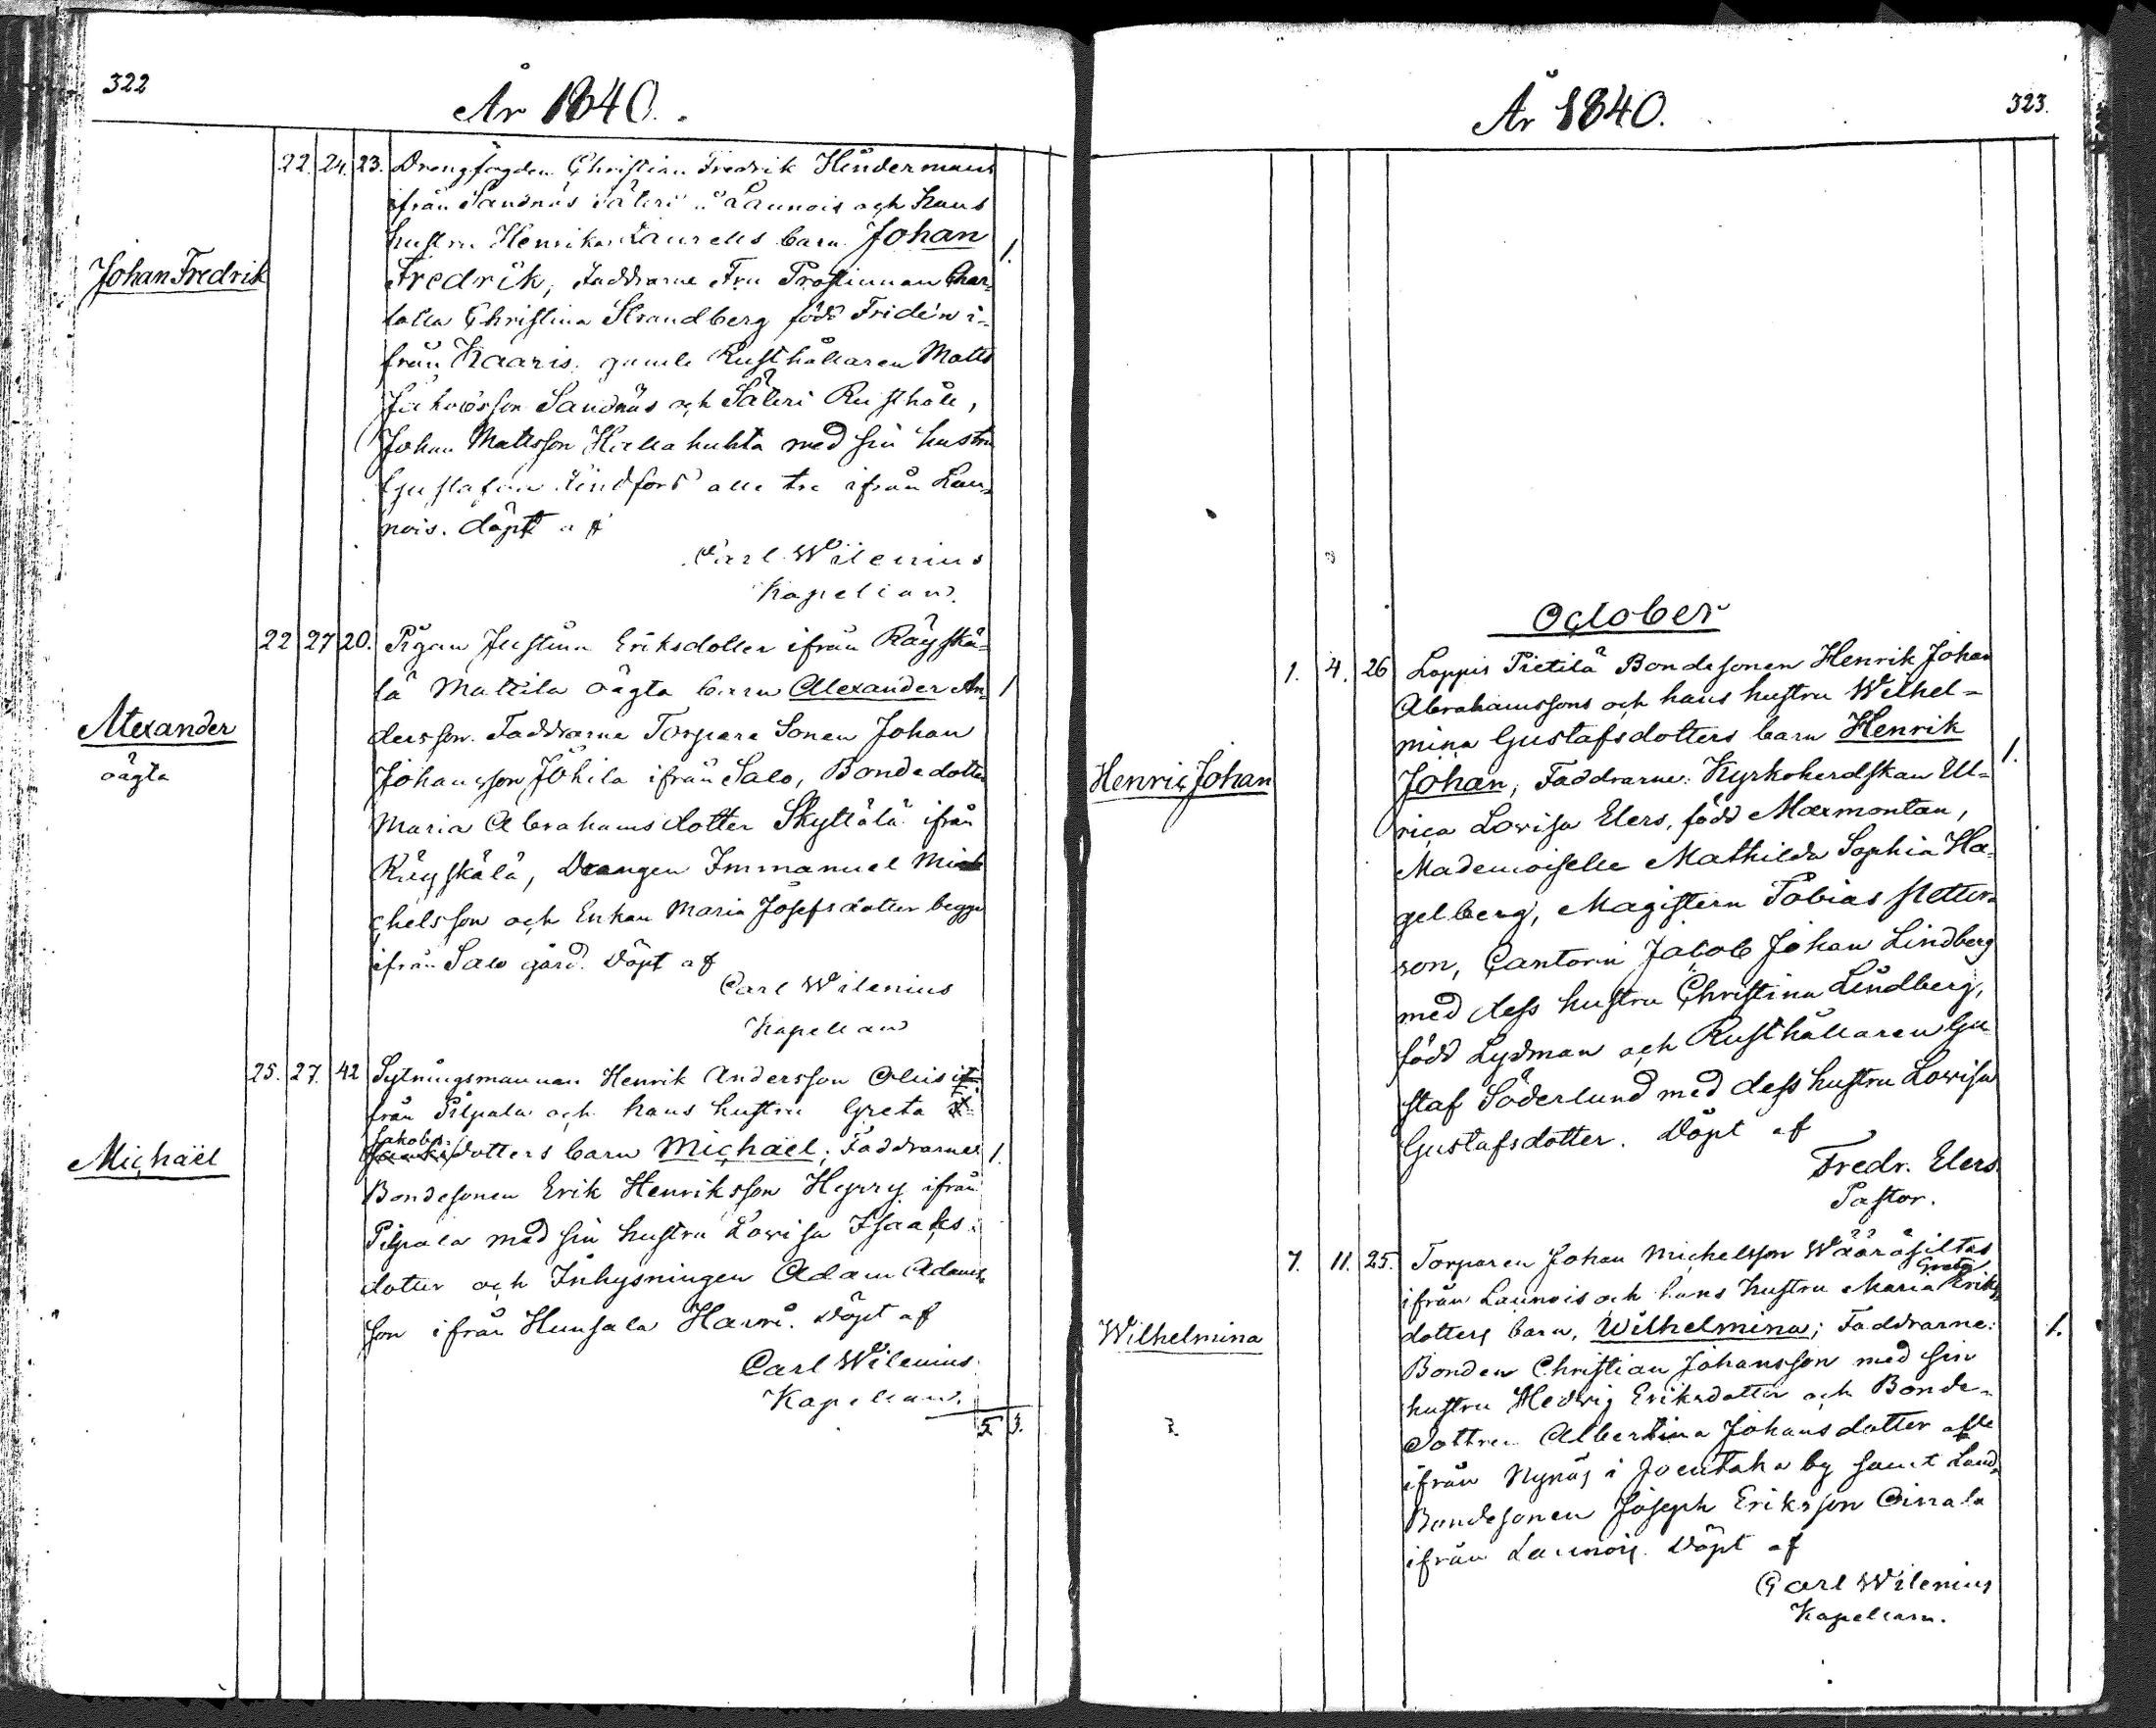 322
År 1840.
22. 24. 23. Drengfogden Christian Fredrik Hindermans
ifrån Sandnäs Säteri i Launois och hans
hustru Henrika Laurells barn Johan 1.
Johan Fredrik
Fredrik, Faddrarne Fru Prostinnan Char-
lotta Christina Strandberg född Fridén i-
från Kaaris. gamle Rusthållaren Matts
Jakobsson Sandnäs och Säteri Rusthåll,
Johan Mattsson Hallahuhta med sin hustru
Gustafva Lindfors alle tre ifrån Lau-
nois. döpt af
Carl Wilenius
Kapellan.
22 27 20. Pigan Justina Eriksdotter ifrån Räyskä-
lä Mattila oägta barn Alexander An- 1
Alexander
oägta
dersson. Faddrarne Torpare Sonen Johan
Johansson Jöhila ifrån Salo, Bondedotter
Maria Abrahamsdotter Skyttälä ifrån
Räyskälä, Drängen Immanuel Mi
chelsson och Enkan Maria Josefsdotter begge
ifrån Salo gård. Döpt af
Carl Wilenius
Kapellan
25. 27. 42 Sytningsmannen Henrik Andersson
från Pilpala och hans hustru Greta
Jakobs-
dotters barn Michaël; Faddrarne 1.
Michaël
Bondesonen Erik Henriksson Heyry ifrån
Pilpala med sin hustru Lovisa Isaaks-
dotter och Inhysningen Adam Adams-
son ifrån Hunsala Harvi. Döpt af
Carl Wilenius
Kapellan.
5 3.
År 1840.
323.
October
1. 4. 26 Loppis Pietilä Bondesonen Henrik Johan
Abrahamssons och hans hustru Wilhel-
mina Gustafsdotters barn Henrik
Henric Johan
Johan, Faddrarne: Kyrkoherdskan Ul- 1.
rica Lovisa Elers, född Marmontan,
Mademoiselle Mathilda Sophia Ha-
gelberg, Magistern Tobias Petter-
son, Cantorn Jacob Johan Lindberg
med dess hustru Christina Lindberg,
född Lydman och Rusthållaren Gu-
staf Söderlund med dess hustru Lovisa
Gustafsdotter. Döpt af
Fredr. Elers
Pastor.
7. 11. 25. Torparen Johan Michelsson Wääräsiltas
Greta
ifrån Launois och hans hustru Maria Eriks-
Wilhelmina
dotters barn, Wilhelmina; Faddrarne: 1.
Bonden Christian Johansson med sin
hustru Hedvig Eriksdotter och Bonde-
dottren Albertina Johansdotter alle
ifrån Nynäs i Joentaka by samt Land-
Bondesonen Joseph Eriksson Oinala
ifrån Launois. Döpt af
Carl Wilenius
Kapellan.